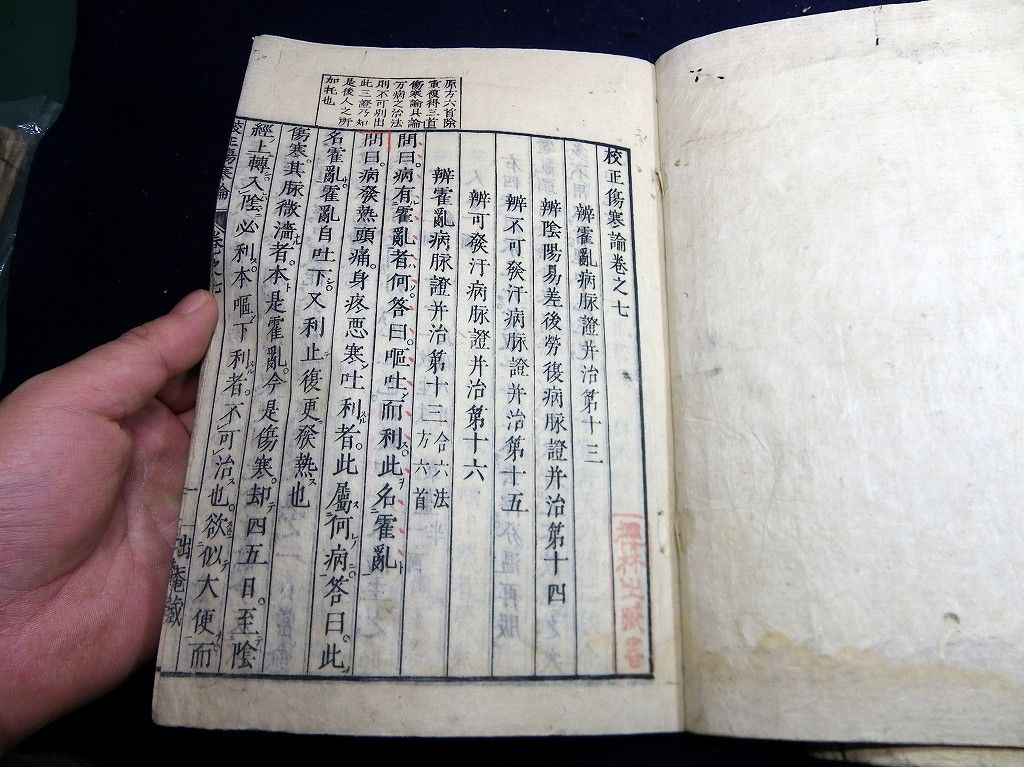 校正傷寒論卷之七
辨霍亂病脉證并治第十三
辨陰陽易差後勞復病脉證并治第十四
辨不可發汗病脉證并治第十五
辨可發汗病脉證并治第十六
辨霍亂病脉證并治第十三 合六法 方六首
問曰。病有霍亂者何。答曰。嘔吐而利。此名霍亂
問曰。病發熱頭痛。身疼惡寒。吐利者。此屬何病。答曰。此
名霍亂。霍亂自吐下。又利止。復更發熱也
傷寒。其脉微濇者。本是霍亂。今是傷寒。却四五日。至陰
經上。轉入陰必利。本嘔下利者。不可治也。欲似大便而
原方六首除
重復得三首
傷寒論具論
万病之治法
則不可別出
此三證乃知
是後人之所
加托也
校正傷寒論 卷之七 一